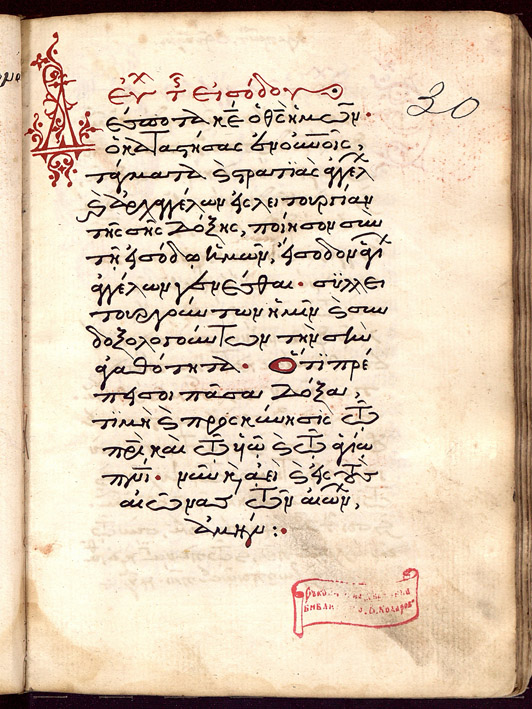 εὐχ τῆς εἰσόδου
Δέσποτα κε ὁ θς ἡμῶν·
ὁ καταστήσας ἐν οὐνοῖς,
τάγματα ϗ στρατιὰς ἀγγέλ
ϗ ἀρχαγγέλων εἰς λειτουργίαν
τῆς σῆς δόξης, ποίησον σὺν
τῇ εἰσόδω ἡμῶν, εἴσοδον ἁγί
ἀγγέλων γενέσθαι· συλλει
τουργούντων ἡμῖν ϗ συν
δοξολογούντων τὴν σὴν
ἀγαθότητα· Ὅτι πρέ
πει σοι πᾶσα δόξα,
τιμὴ ϗ προσκύνησις τῶ
πρὶ καὶ τῶ υἱῶ ϗ τῶ ἁγίω
πνὶ· νῦν ϗ ἀεὶ ϗ εἰς τοὺς
αἰῶνας τῶν αἰώνων,
ἀμήν:·
30
В. Коларов